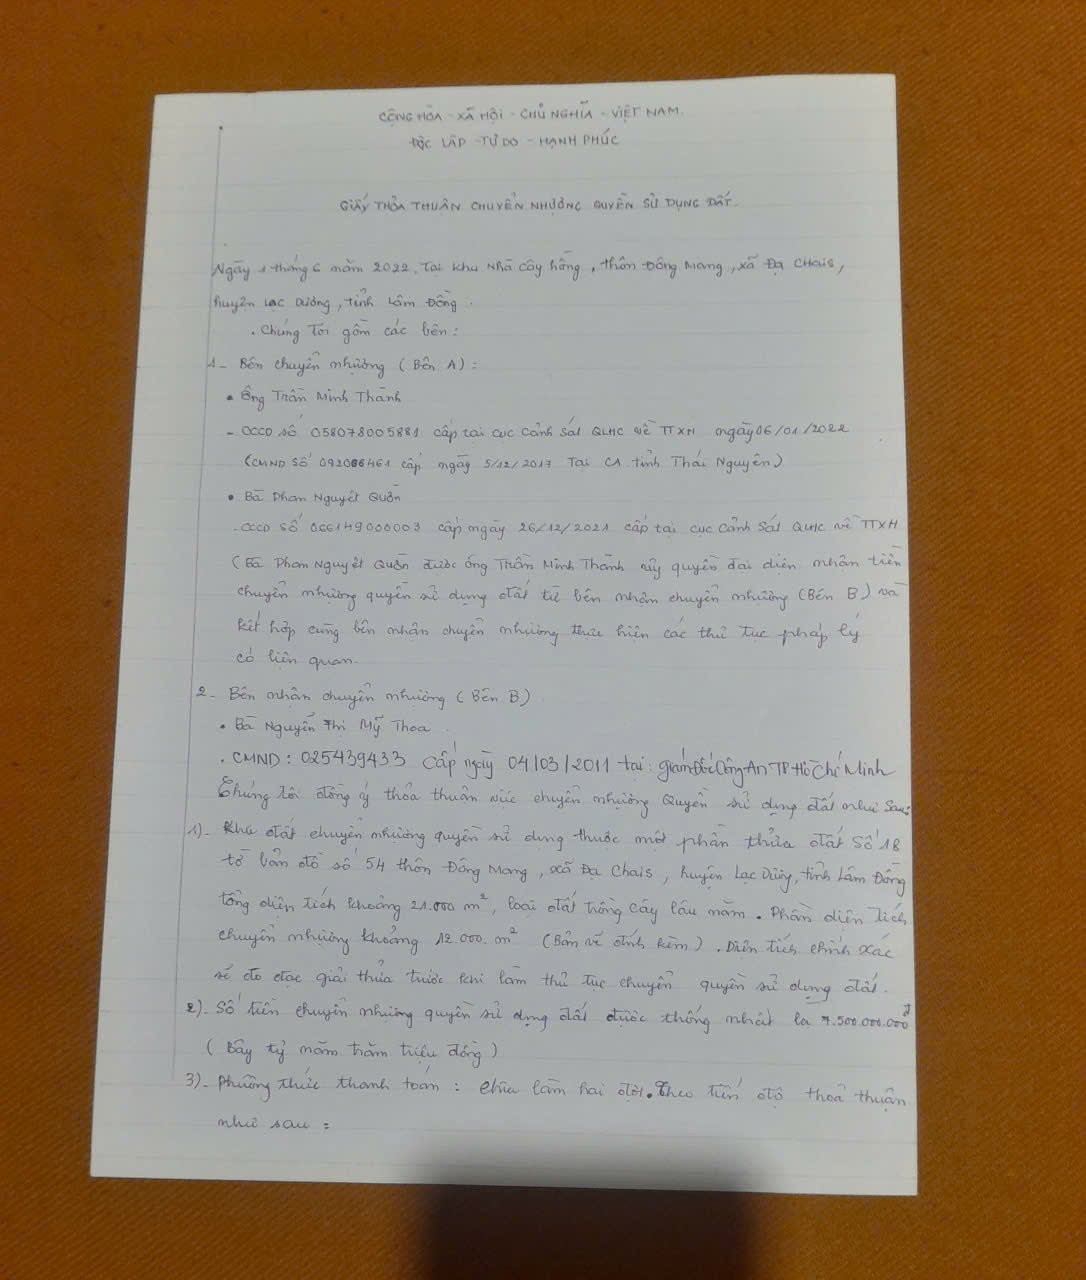 CỘNG HÒA - XÃ HỘI - CHỦ NGHĨA - VIỆT NAM.
ĐỘC LẬP - TỰ DO - HẠNH PHÚC
GIẤY THỎA THUẬN CHUYỂN NHƯỢNG QUYỀN SỬ DỤNG ĐẤT.
Ngày 1 tháng 6 năm 2022. Tại khu Nhà Cây hồng, thôn Đông Mang, xã Đạ CHais,
huyện Lạc Dương, tỉnh Lâm Đồng.
. Chúng Tôi gồm các bên:
1- Bên chuyển nhượng (Bên A):
• Ông Trần Minh Thành
- CCCD số 058078005881 cấp tại cục cảnh sát QLHC về TTXH ngày 06/01/2022
(CMND số 092066461 cấp ngày 5/12/2017 Tại CA tỉnh Thái Nguyên)
• Bà Phan Nguyệt Quân
- CCCD số 066149000003 cấp ngày 26/12/2021 cấp tại cục cảnh sát QLHC về TTXH
(Bà Phan Nguyệt Quân được ông Trần Minh Thành ủy quyền đại diện nhận tiền
chuyển nhượng quyền sử dụng đất từ bên nhận chuyển nhượng (Bên B) và
kết hợp cùng bên nhận chuyển nhượng thực hiện các thủ tục pháp lý
có liên quan.
2- Bên nhận chuyển nhượng (Bên B)
• Bà Nguyễn Thị Mỹ Thoa.
. CMND: 025439433 Cấp ngày 04/03/2011 tại: giám Đốc Công An TP Hồ Chí Minh
Chúng tôi đồng ý thỏa thuận việc chuyển nhượng Quyền sử dụng đất như sau:
1)- Khu đất chuyển nhượng quyền sử dụng thuộc một phần thửa đất số 18
tờ bản đồ số 54 thôn Đông Mang, xã Đạ Chais, huyện Lạc Dương, tỉnh Lâm Đồng
tổng diện tích khoảng 21.000 m², loại đất trồng cây lâu năm. Phần diện tích
chuyển nhượng khoảng 12.000. m² (Bản vẽ đính kèm). Diện tích chính xác
sẽ đo đạc giải thửa trước khi làm thủ tục chuyển quyền sử dụng đất.
2)- Số tiền chuyển nhượng quyền sử dụng đất được thống nhất là 7.500.000.000đ
(Bảy tỷ năm trăm triệu đồng)
3)- Phương thức thanh toán: chia làm hai đợt. Theo tiến độ thoả thuận
như sau: